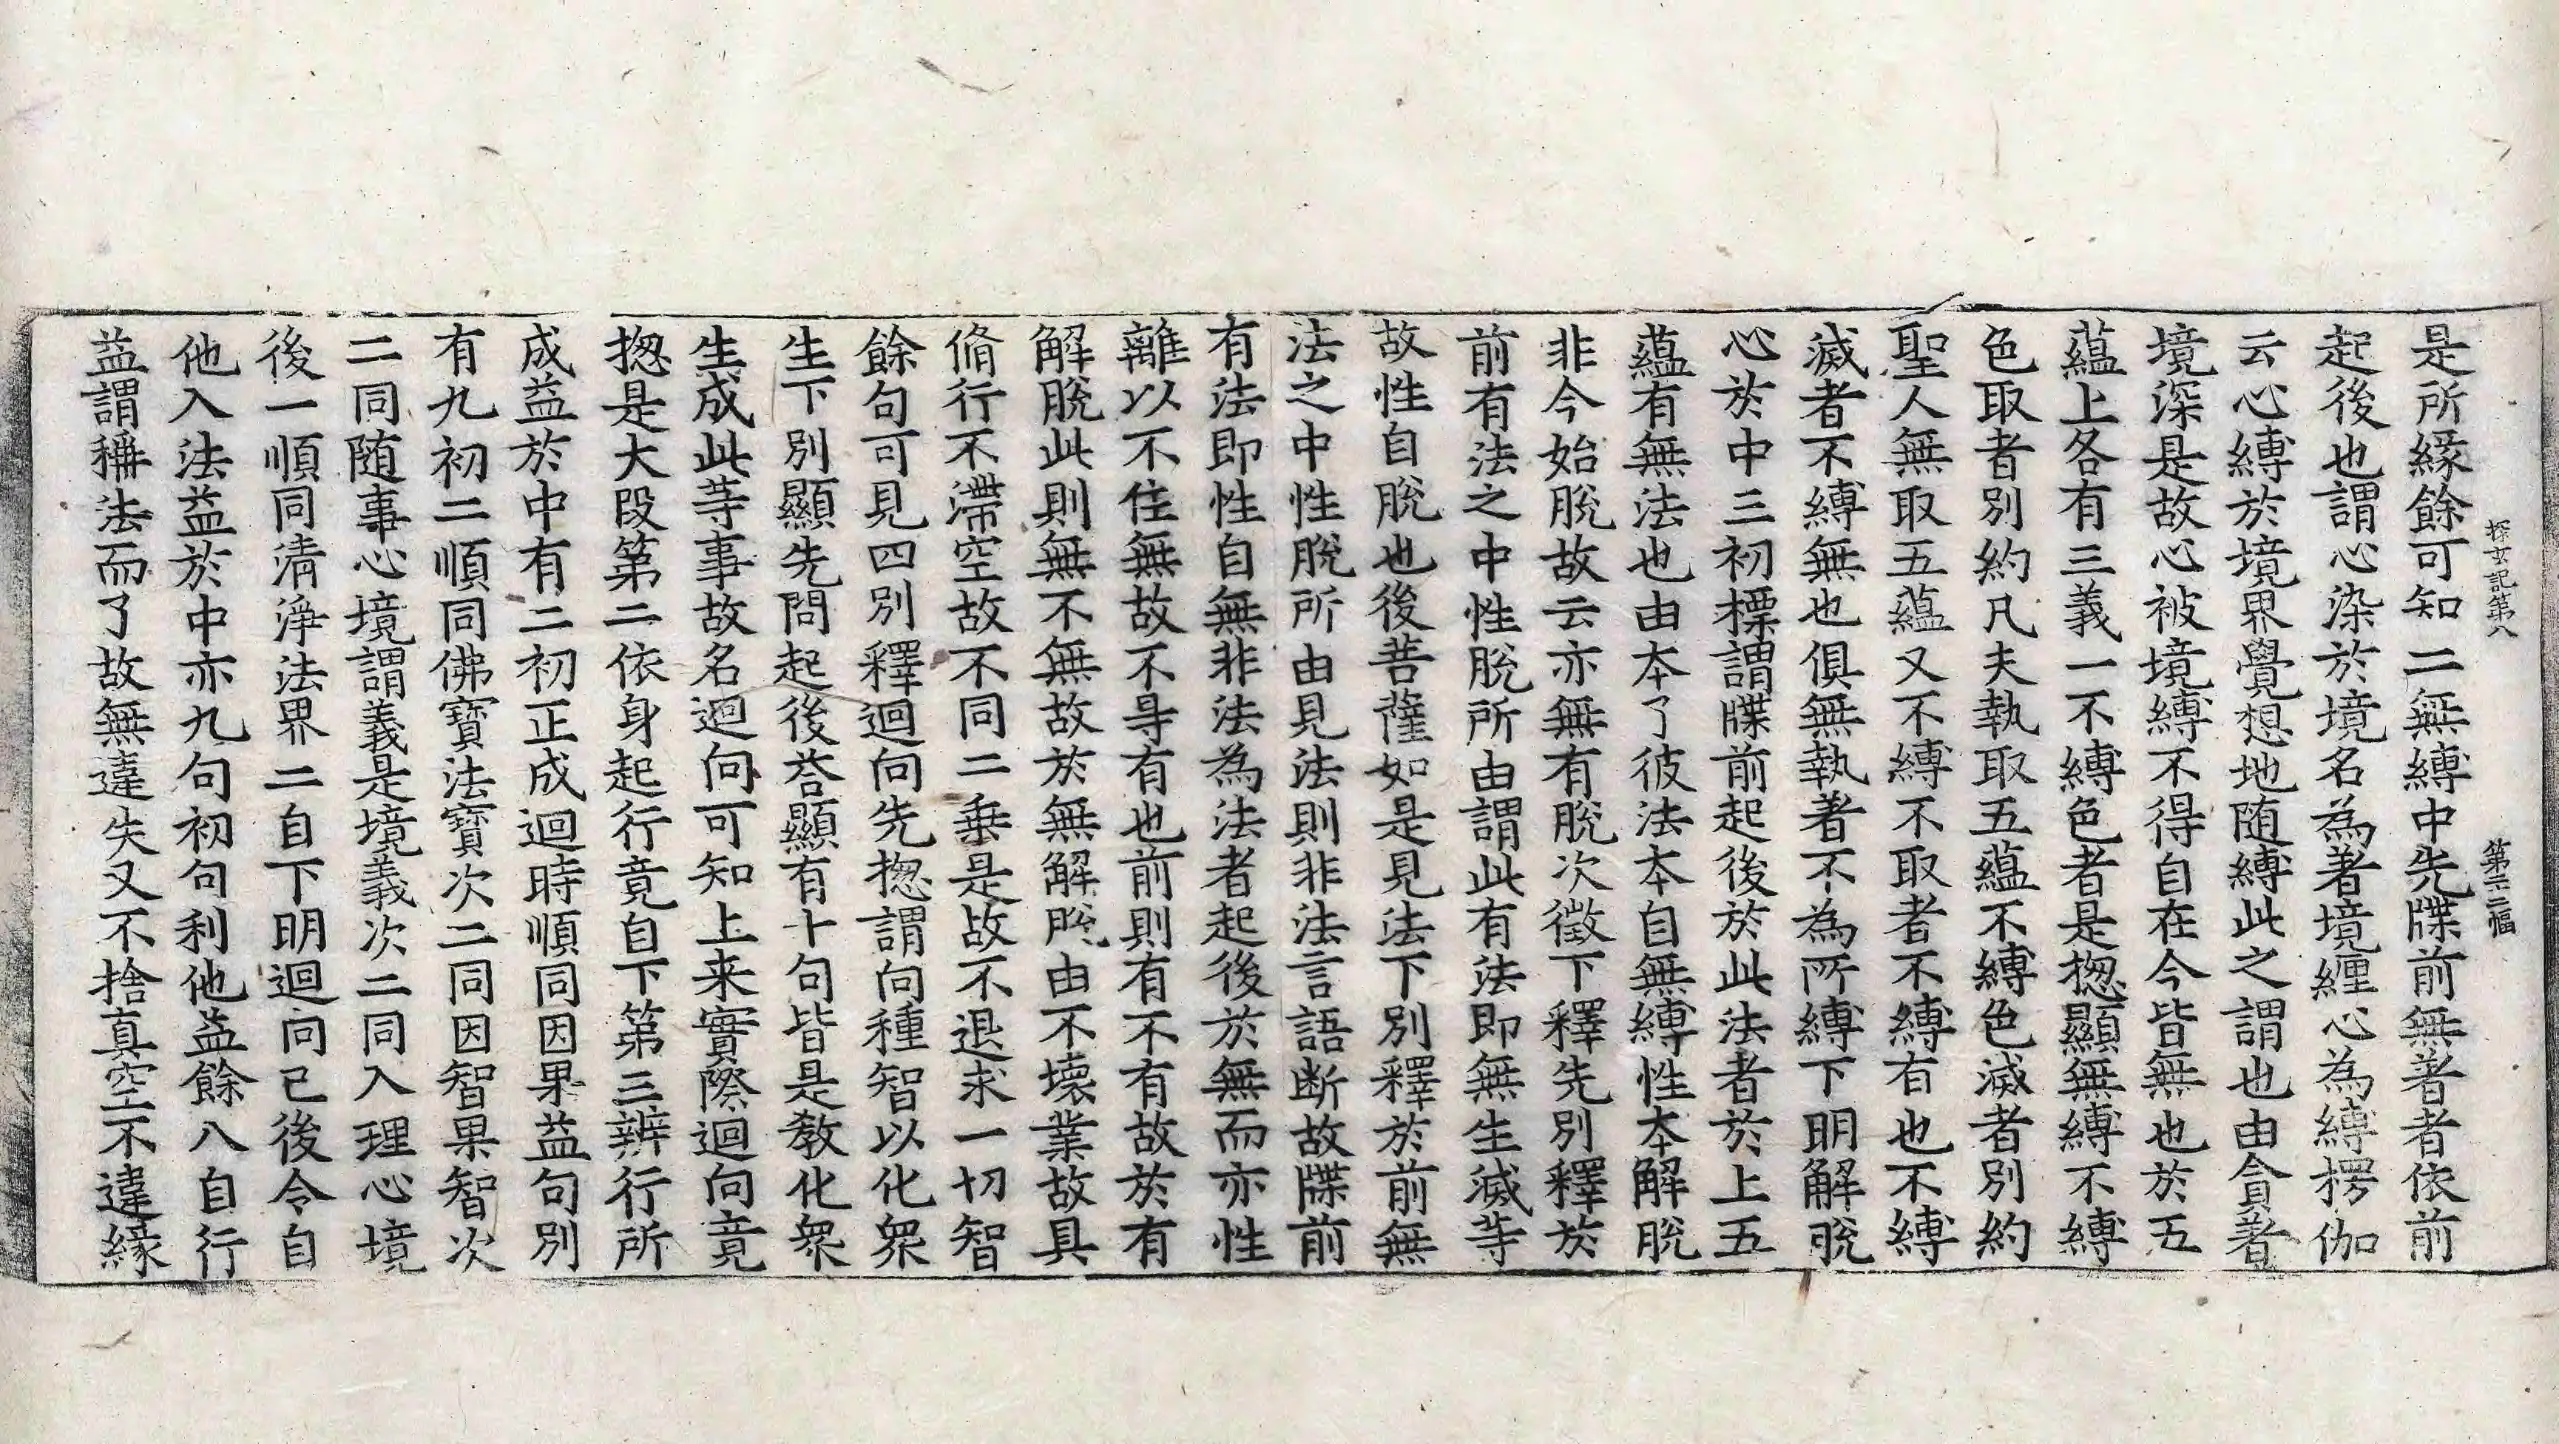 探玄記第八 第三十二幅
是所緣餘可知二無縛中先牒前無著者依前
起後也謂心染於境名為著境纏心為縛楞伽
云心縛於境界覺想地随縛此之謂也由貪著
境深是故心被境縛不得自在今皆無也於五
蘊上各有三義一不縛色者是揔顯無縛不縛
色取者別約凡夫執取五蘊不縛色滅者別約
聖人無取五蘊又不縛不取者不縛有也不縛
滅者不縛無也俱無執著不為所縛下明解脫
心於中三初標謂牒前起後於此法者於上五
蘊有無法也由本了彼法本自無縛性本解脫
非今始脫故云亦無有脫次徵下釋先別釋於
前有法之中性脫所由謂此有法即無生滅等
故性自脫也後菩薩如是見法下別釋於前無
法之中性脫所由見法則非法言語断故牒前
有法即性自無非法為法者起後於無而亦性
離以不住無故不㝵有也前則有不有故於有
解脫此則無不無故於無解脫由不壞業故具
脩行不滯空故不同二乗是故不退求一切智
餘句可見四別釋迴向先揔謂向種智以化衆
生下別顯先問起後荅顯有十句皆是教化衆
生成此等事故名迴向可知上来實際迴向竟
揔是大段第二依身起行竟自下第三辨行所
成益於中有二初正成迴時順同因果益句別
有九初二順同佛寶法寶次二同因智果智次
二同随事心境謂義是境義次二同入理心境
後一順同清淨法界二自下明迴向已後令自
他入法益於中亦九句初句利他益餘八自行
益謂稱法而了故無違失又不捨真空不違緣